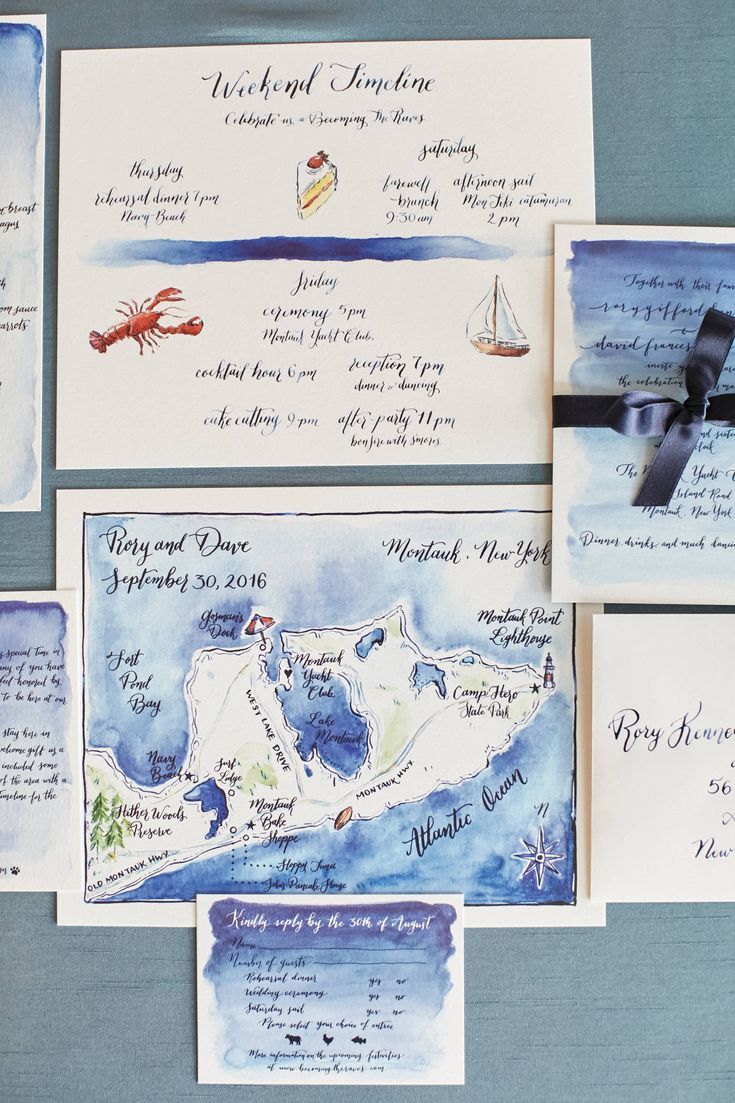 Weekend Timeline
Celebrate us, Becoming The Raves.
thursday
rehearsal dinner 7 pm
Navy Beach
saturday
farewell brunch
9:30 am
afternoon sail
Mon Tiki catamaran
2 pm
friday
ceremony 5 pm
Montauk Yacht Club.
cocktail hour 6 pm
reception 7 pm
dinner & dancing
cake cutting 9 pm
after party 11 pm
bonfire with smores.
breast
sauce
carrots
Together with their
rory gifford
&
david frances
invite you
the celebration
The
Yacht
Island Road
Montauk New York
Dinner, drinks, and much
Rory and Dave
September 30, 2016
Montauk, New York
Gosman's Dock
Fort Pond Bay
Montauk Yacht Club
Montauk Point Lighthouse
Camp Hero State Park
West Lake Drive
Lake Montauk
Navy Beach
Surf Lodge
Hither Woods Preserve
Montauk Bake Shoppe
Montauk Hwy.
Atlantic Ocean
N
Old Montauk Hwy.
Sloppy Tuna
Johns Pancake House
special time in
any of you have
feel honored by
To be here at our
stay here in
welcome gift as a
included some
of the area with a
timeline for the
Rory
56
New
Kindly reply by the 30th of August
Name
Number of guests
Rehearsal dinner yes no
Wedding ceremony yes no
Saturday sail yes no
Please select your choice of entree
More information on the upcoming festivities
at www.becomingtheraves.com